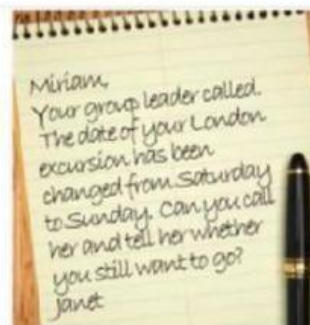 Miriam,
Your group leader called.
The date of your London
excursion has been
changed from Saturday
to Sunday. Can you call
her and tell her whether
you still want to go?
Janet